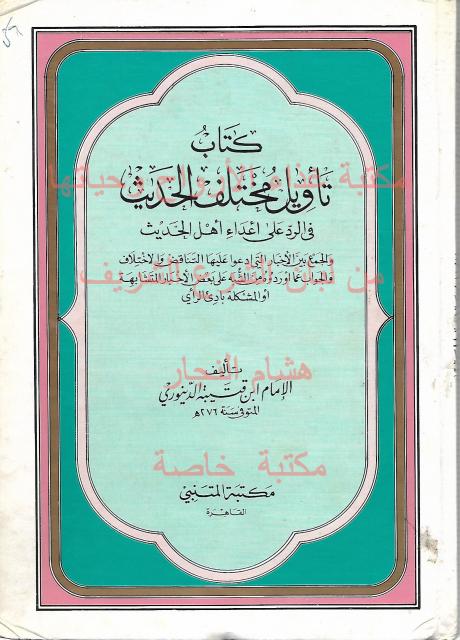 كتاب
تأويل مختلف الحديث
في الرد على أعداء أهل الحديث
والجمع بين الأخبار التي ادعوا عليها التناقض والاختلاف
والجواب عما أوردوه من الشبه على بعض الأخبار المتشابهة
أو المشكلة بادئ الرأي
تأليف
الإمام ابن قتيبة الدينوري
المتوفى سنة ٢٧٦ هـ
مكتبة المتنبي
القاهرة
مكتبة غذاء الأرواح وحياتها
من لبن الشرع الشريف
هشام النجار
مكتبة خاصة